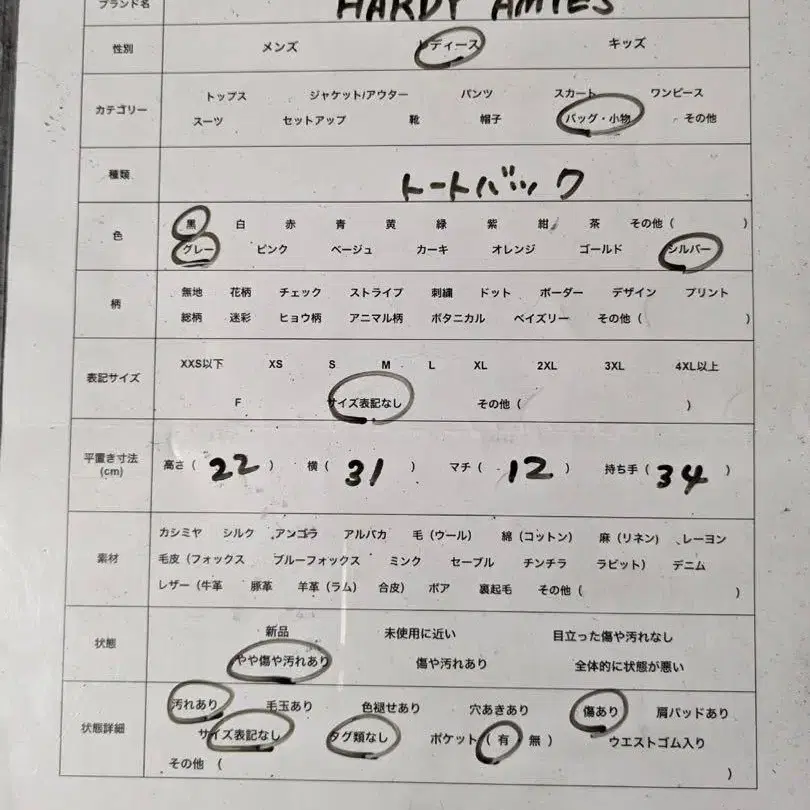 ブランド名 HARDY AMIES
性別 メンズ レディース キッズ
カテゴリー
トップス ジャケット/アウター パンツ スカート ワンピース
スーツ セットアップ 靴 帽子 バッグ・小物 その他
種類 トートバック
色
黒 白 赤 青 黄 緑 紫 紺 茶 その他 ( )
グレー ピンク ベージュ カーキ オレンジ ゴールド シルバー
柄
無地 花柄 チェック ストライプ 刺繍 ドット ボーダー デザイン プリント
総柄 迷彩 ヒョウ柄 アニマル柄 ボタニカル ペイズリー その他 ( )
表記サイズ
XXS以下 XS S M L XL 2XL 3XL 4XL以上
F サイズ表記なし その他 ( )
平置き寸法
(cm)
高さ ( 22 ) 横 ( 31 ) マチ ( 12 ) 持ち手 ( 34 )
素材
カシミヤ シルク アンゴラ アルパカ 毛 (ウール) 綿 (コットン) 麻 (リネン) レーヨン
毛皮 (フォックス ブルーフォックス ミンク セーブル チンチラ ラビット) デニム
レザー (牛革 豚革 羊革 (ラム) 合皮) ボア 裏起毛 その他 ( )
状態
新品 未使用に近い 目立った傷や汚れなし
やや傷や汚れあり 傷や汚れあり 全体的に状態が悪い
状態詳細
汚れあり 毛玉あり 色褪せあり 穴あきあり 傷あり 肩パッドあり
サイズ表記なし タグ類なし ポケット ( 有 無 ) ウエストゴム入り
その他 ( )